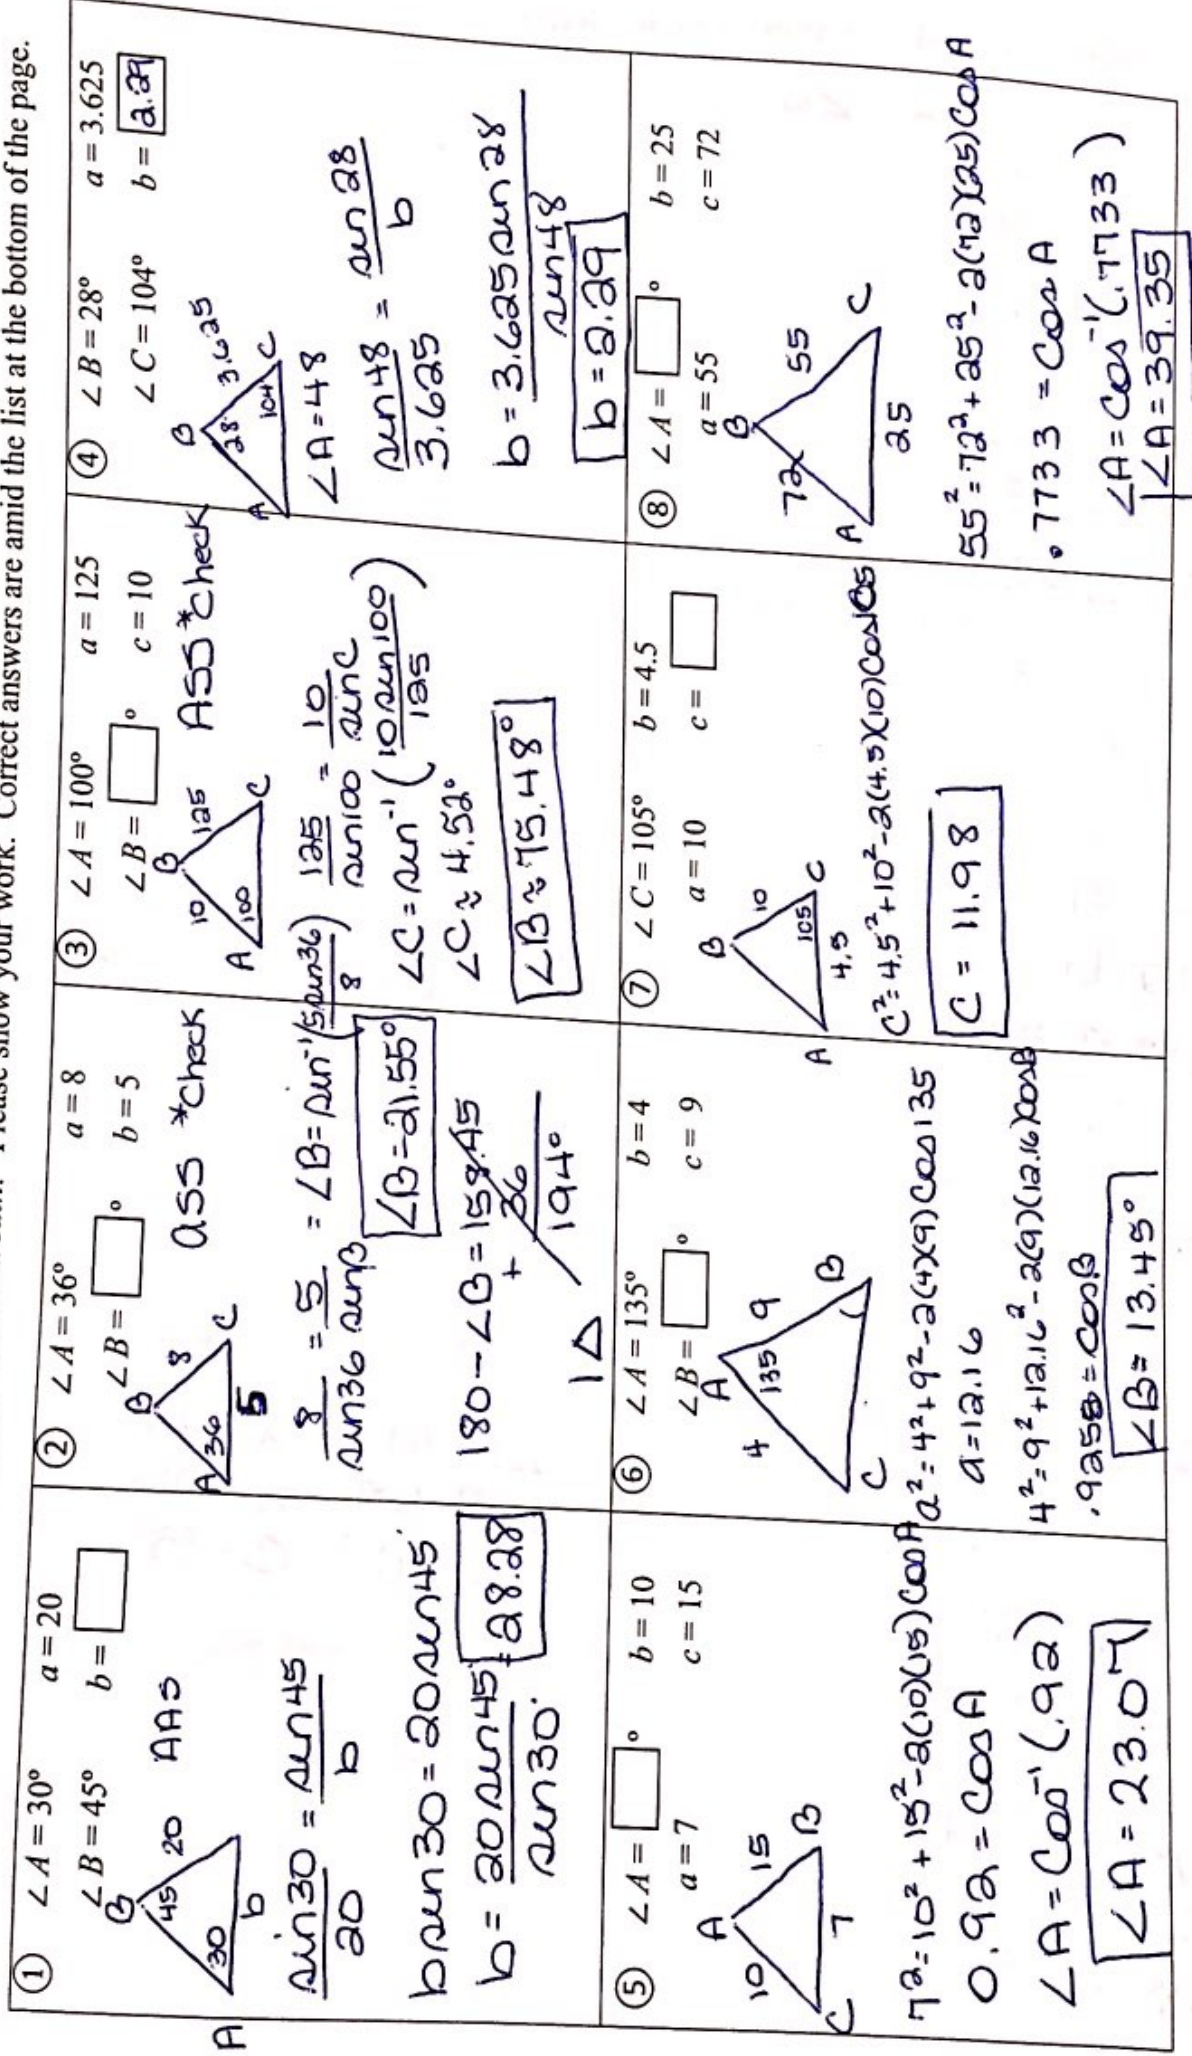 Please show your work. Correct answers are amid the list at the bottom of the page.
① ∠A = 30° a = 20
∠B = 45° b =
AAS
B
45
20
30
A
b
sin30/20 = sin45/b
b sin30 = 20 sin45
b = 20 sin45/sin30 = 28.28
② ∠A = 36° a = 8
∠B = ° b = 5
ass *check
B
8
A 36 C
5
8/sin36 = 5/sinB = ∠B = sin⁻¹(5 sin36/8)
∠B = 21.55°
180 - ∠B = 158.45
+ 36
194°
1△
③ ∠A = 100° a = 125
∠B = ° c = 10
ASS *check
B
10 125
A 100 C
125/sin100 = 10/sinC
∠C = sin⁻¹(10 sin100/125)
∠C ≈ 4.52°
∠B ≈ 75.48°
④ ∠B = 28° a = 3.625
∠C = 104° b = 2.29
B
28 3.625
A 104 C
∠A = 48
sin48/3.625 = sin28/b
b = 3.625 sin28/sin48
b = 2.29
⑤ ∠A = ° b = 10
a = 7 c = 15
A
10 15
C 7 B
7² = 10² + 15² - 2(10)(15) cosA
0.92 = cosA
∠A = cos⁻¹(.92)
∠A = 23.07
⑥ ∠A = 135° b = 4
∠B = ° c = 9
A
4 135 9
C B
a² = 4² + 9² - 2(4)(9) cos135
a = 12.16
4² = 9² + 12.16² - 2(9)(12.16) cosB
.9258 = cosB
∠B = 13.45°
⑦ ∠C = 105° b = 4.5
a = 10 c =
B
10
A 105 C
4.5
c² = 4.5² + 10² - 2(4.5)(10) cos105
C = 11.98
⑧ ∠A = ° b = 25
a = 55 c = 72
B
72 55
A C
25
55² = 72² + 25² - 2(72)(25) cosA
.7733 = cosA
∠A = cos⁻¹(.7733)
∠A = 39.35